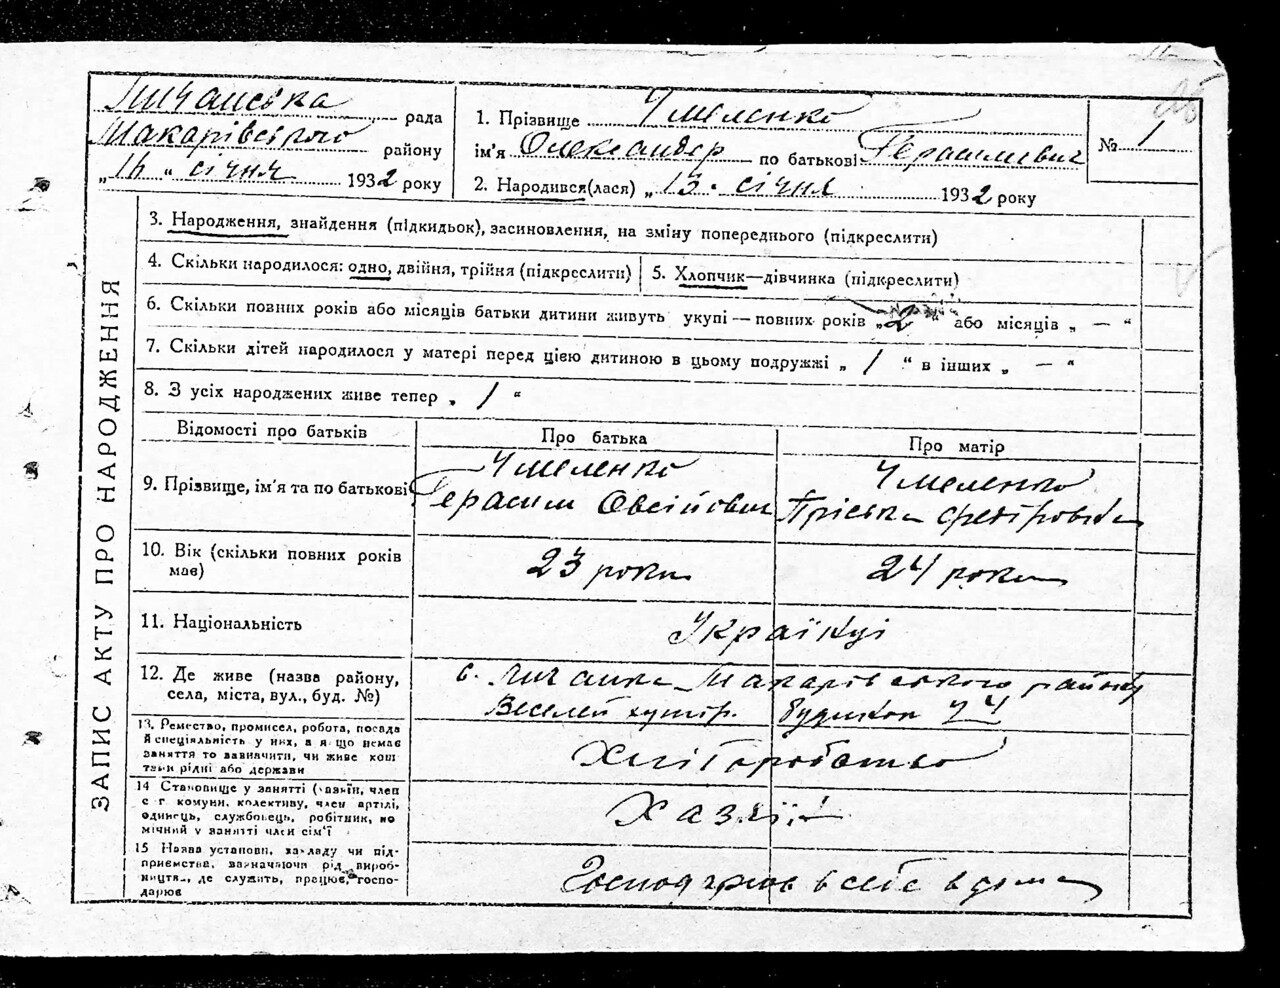 Личанська рада
Макарівського району
"16" січня 1932 року
1. Прізвище Чмеленко
ім'я Олександер по батькові Герасимович
2. Народився(лася) "13. січня 1932 року
№ 1
ЗАПИС АКТУ ПРО НАРОДЖЕННЯ
3. Народження, знайдення (підкидьок), засиновлення, на зміну попереднього (підкреслити)
4. Скільки народилося: одно, двійня, трійня (підкреслити)
5. Хлопчик—дівчинка (підкреслити)
6. Скільки повних років або місяців батьки дитини живуть укупі—повних років „2“ або місяців „ — “
7. Скільки дітей народилося у матері перед цією дитиною в цьому подружжі „ 1 “ в інших „ — “
8. З усіх народжених живе тепер „ 1 “
Відомості про батьків
Про батька
Про матір
9. Прізвище, ім'я та по батькові
Чмеленко
Герасим Овсійович
Чмеленко
Пріська Федоровна
10. Вік (скільки повних років
має)
23 роки
24 роки
11. Національність
Українці
12. Де живе (назва району,
села, міста, вул., буд. №)
с. Личанка Макарівського району
Веселей хутір. будинок 74
13. Ремество, промисел, робота, посада
й спеціяльність у них, а якщо немає
заняття то зазначити, чи живе кошт
ом рідні або держави
Хліборобство
14 Становище у занятті (хазяїн, член
с г комуни, колективу, член артілі,
одинець, службовець, робітник, по
мічний у занятті член сім'ї
Хазяїн
15 Назва установи, закладу чи під-
приємства, зазначаючи рід вироб-
ництва, де служить, працює, госпо-
дарює
Господарює в себе вдома